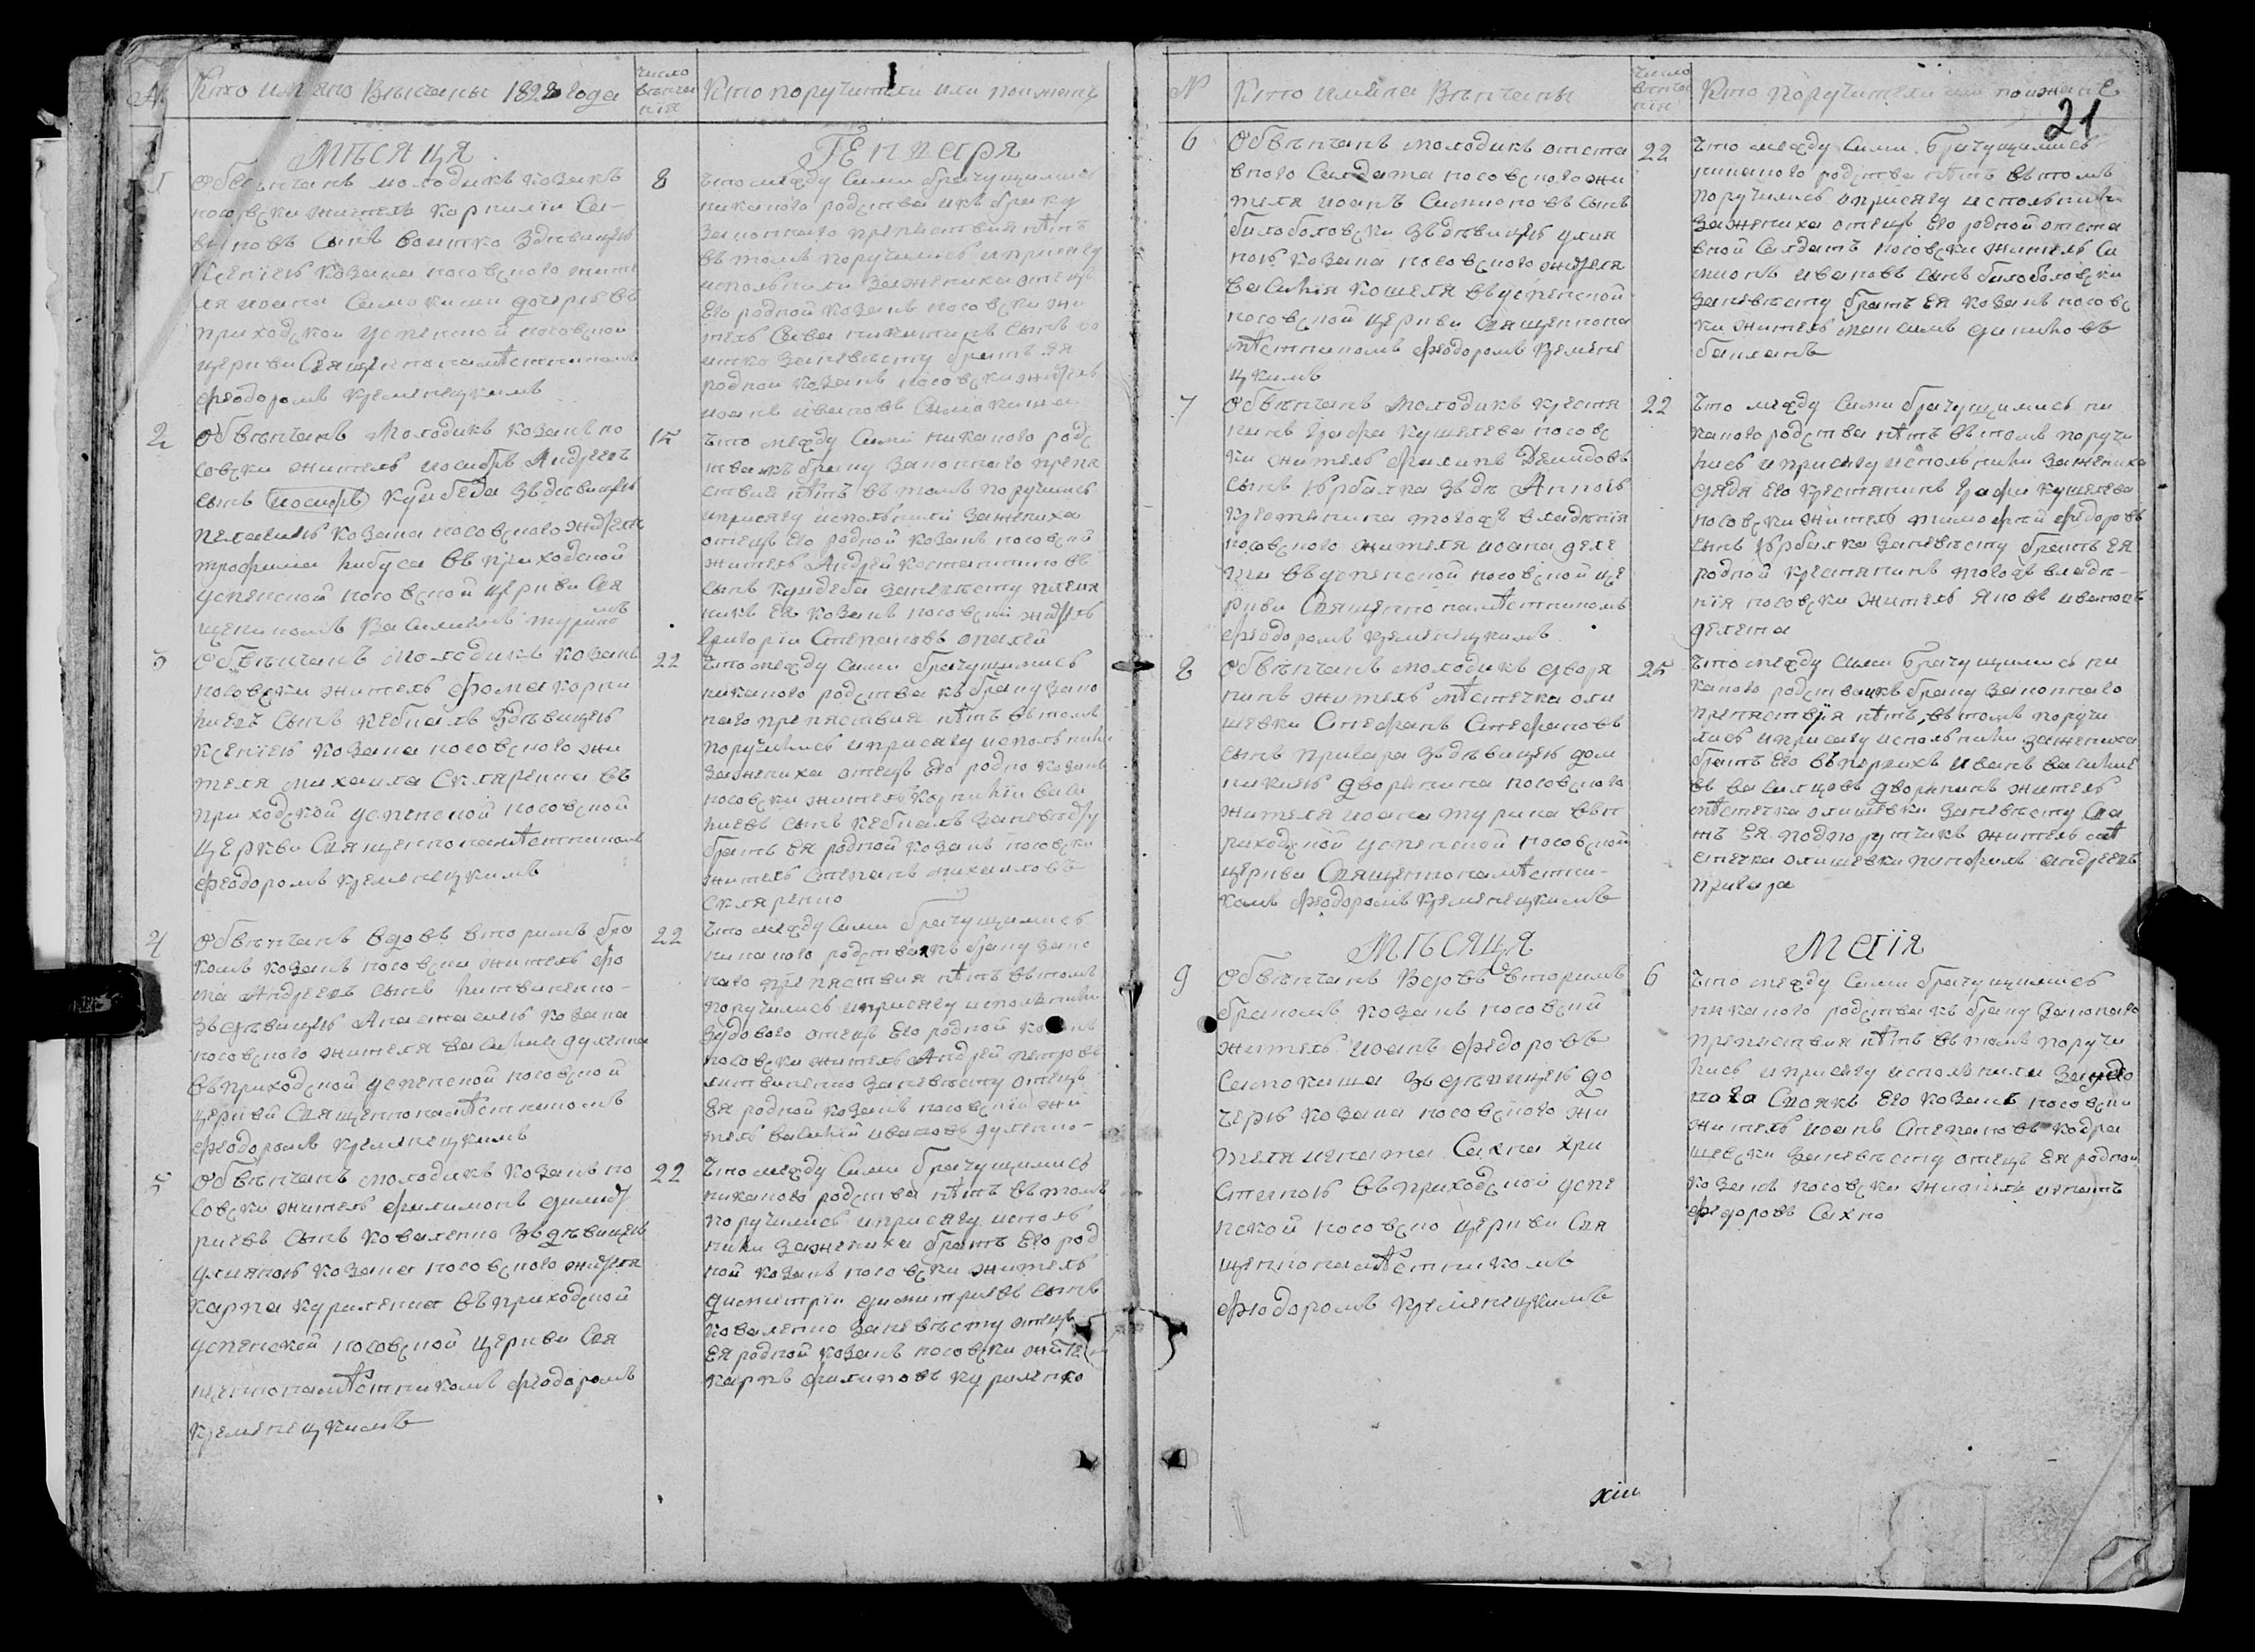 №
Кто имяно Вѣнчаны 1828 года
число
вѣнча
нія
Кто поручители или поимянъ
Мѣсяця
Генваря
1
Обвѣнчанъ молодикъ козакъ
носовски житель корнилiи Са-
винъ Сынъ здѣвицею
Ксениею козака носовского жите
ля иоана Самокиши дочерью въ
приходской успенской носовской
церкви Священнонамѣстникомъ
Феодоромъ Кременецкимъ
8
Что между Сими брачущимись
никакого родства икъ браку
законного препятствия нѣтъ
въ томъ поручились и присягу
испольнили зажениха отецъ
Его родной козакъ носовски жи
тель Сава никитинъ Сынъ
заневѣсту братъ Ея
родной козакъ носовски житель
иоанъ ивановъ Самокиша
2
Обвѣнчанъ Молодикъ козакъ но
совски житель иосифъ Андреевъ
сынъ (иосифъ) Куибеда здѣвицею
пелагиею козака носовского жителя
трофима въ приходской
успенской носовской церкви Свя
щеникомъ Василиемъ турино
мъ
15
Что между Сими никакого родс
тва икъ браку законного препя
ствия нѣтъ въ томъ поручились
иприсягу испольнили зажениха
отецъ Его родной козакъ носовской
житель Андрей костантиновъ
сынъ Куидеба заневѣсту племя
никъ Ея козакъ носовский житель
григорiи Степановъ
3
Обвѣнчанъ Молодикъ козакъ
носовски житель фома корни
лиевъ сынъ кебкалъ здѣвицею
ксениею козака носовского жи
теля михаила Скляренка въ
приходской успенской носовской
церкви Священнонамѣстникомъ
Феодоромъ Кременецкимъ
22
Что между Сими брачущимись
никакого родства къ браку зако
наго препятствия нѣтъ въ томъ
поручились иприсягу испольнили
зажениха отецъ Его родно козакъ
носовски житель Корнилiи Васи
лиевъ сынъ кебкалъ заневѣсту
братъ Ея родной козакъ носовски
житель Степанъ михаиловъ
скляренко
4
Обвѣнчанъ вдовъ вторимъ бра
комъ козакъ носовски житель фо
ма Андреевъ сынъ литвиненко-
здѣвицею Анастасиею козака
носовского жителя василия дуленка
въ приходской успенской носовской
церкви Священнонамѣстникомъ
Феодоромъ Кременецкимъ
22
Что между Сими брачущимись
никакого родства къ браку зако
наго препятствия нѣтъ въ томъ
поручились иприсягу испольнили
здового отецъ Его родной козакъ
носовски житель Андрей петровъ
литвиненко заневѣсту отецъ
Ея родной козакъ носовскiи жи
тель василiй ивановъ дуленко-
5
Обвѣнчанъ молодикъ козакъ но
совски житель филимонъ димит
риевъ сынъ коваленко здѣвицею
улияною козака носовского жителя
карпа куриленка въ приходской
успенской носовской церкви Свя
щеннонамѣстникомъ Феодоромъ
Кременецкимъ
22
Что между Сими брачущимись
никакого родства нѣтъ въ томъ
поручились иприсягу исполь
нили зажениха братъ Его род
ной козакъ носовски житель
димитрiи димитриевъ сынъ
коваленко заневѣсту отецъ
Ея родной козакъ носовски жите
карпъ филиповъ куриленко
№
Кто имяна Вѣнчаны
число
вѣнча
нія
Кто поручители или поимянЕ
21
6
Обвѣнчанъ молодикъ отста
вного Салдата носовского жи
теля иоанъ Симионовъ сынъ
билоболовски здѣвицею улия
ною козака носовского жителя
василия кошеля въуспенской
носовской церкви Священнона
мѣстникомъ Феодоромъ Кремене
цкимъ
22
Что между Сими брачущимись
никакого родства нѣтъ въ томъ
поручились иприсягу испольнили
зажениха отецъ Его родной отста
вной Салдатъ носовски житель Си
мионъ ивановъ сынъ билоболовски
заневѣсту братъ Ея козакъ носовс
ки житель максимъ
7
Обвѣнчанъ Молодикъ крестя
нинъ графа Кушелева носовс
ки житель филипъ Демидовъ
сынъ здѣ Анною
крестянина тогожъ владѣния
носовского жителя иоана деле
ги въуспенской носовской це
ркви Священнонамѣстникомъ
Феодоромъ Кременецкимъ
22
Что между Сими брачущимись ни
какого родства нѣтъ въ томъ поручи
лись иприсягу испольнили зажениха
дядя Его крестянинъ графа Кушелева
носовски житель тимофей федоровъ
сынъ заневѣсту братъ Ея
родной крестянинъ тогожъ владѣ-
нiя носовски житель яковъ ивановъ
8
Обвѣнчанъ молодикъ дворя
нинъ житель мѣстечка оли
шевки Стефанъ Стефановъ
сынъ пригара здѣвицею дом
никиею дворянина носовского
жителя иоана турина въ п
риходской успенской носовской
церкви Священнонамѣстни-
комъ Феодоромъ Кременецкимъ
25
Что между Сими брачущимись ни
какого родства икъ браку законнаго
препятствия нѣтъ, въ томъ поручи
лись иприсягу испольнили зажениха
братъ Его иванъ василие
въ дворянинъ житель
мѣстечка олишевки заневѣсту Сва
тъ Ея подпоручикъ житель мѣ
стечка олишевки Андреевъ
пригара
Мѣсяця
Маiя
9
Обвѣнчанъ Вдовъ вторимъ
бракомъ козакъ носовский
житель иоанъ федоровъ
Самокиша здѣвицею до
черю козака носовского жи
теля игната Сахна хри
стиною въ приходской успе
нской носовско церкви Свя
щеннонамѣстникомъ
Феодоромъ Кременецкимъ
6
Что между Сими брачущимись
никакого родства къ браку законого
препятствия нѣтъ въ томъ поручи
лись иприсягу испольнили
Своякъ Его козакъ носовски
житель иоанъ Степановъ
заневѣсту отецъ Ея родной
козакъ носовски житель игнатъ
федоровъ Сахно